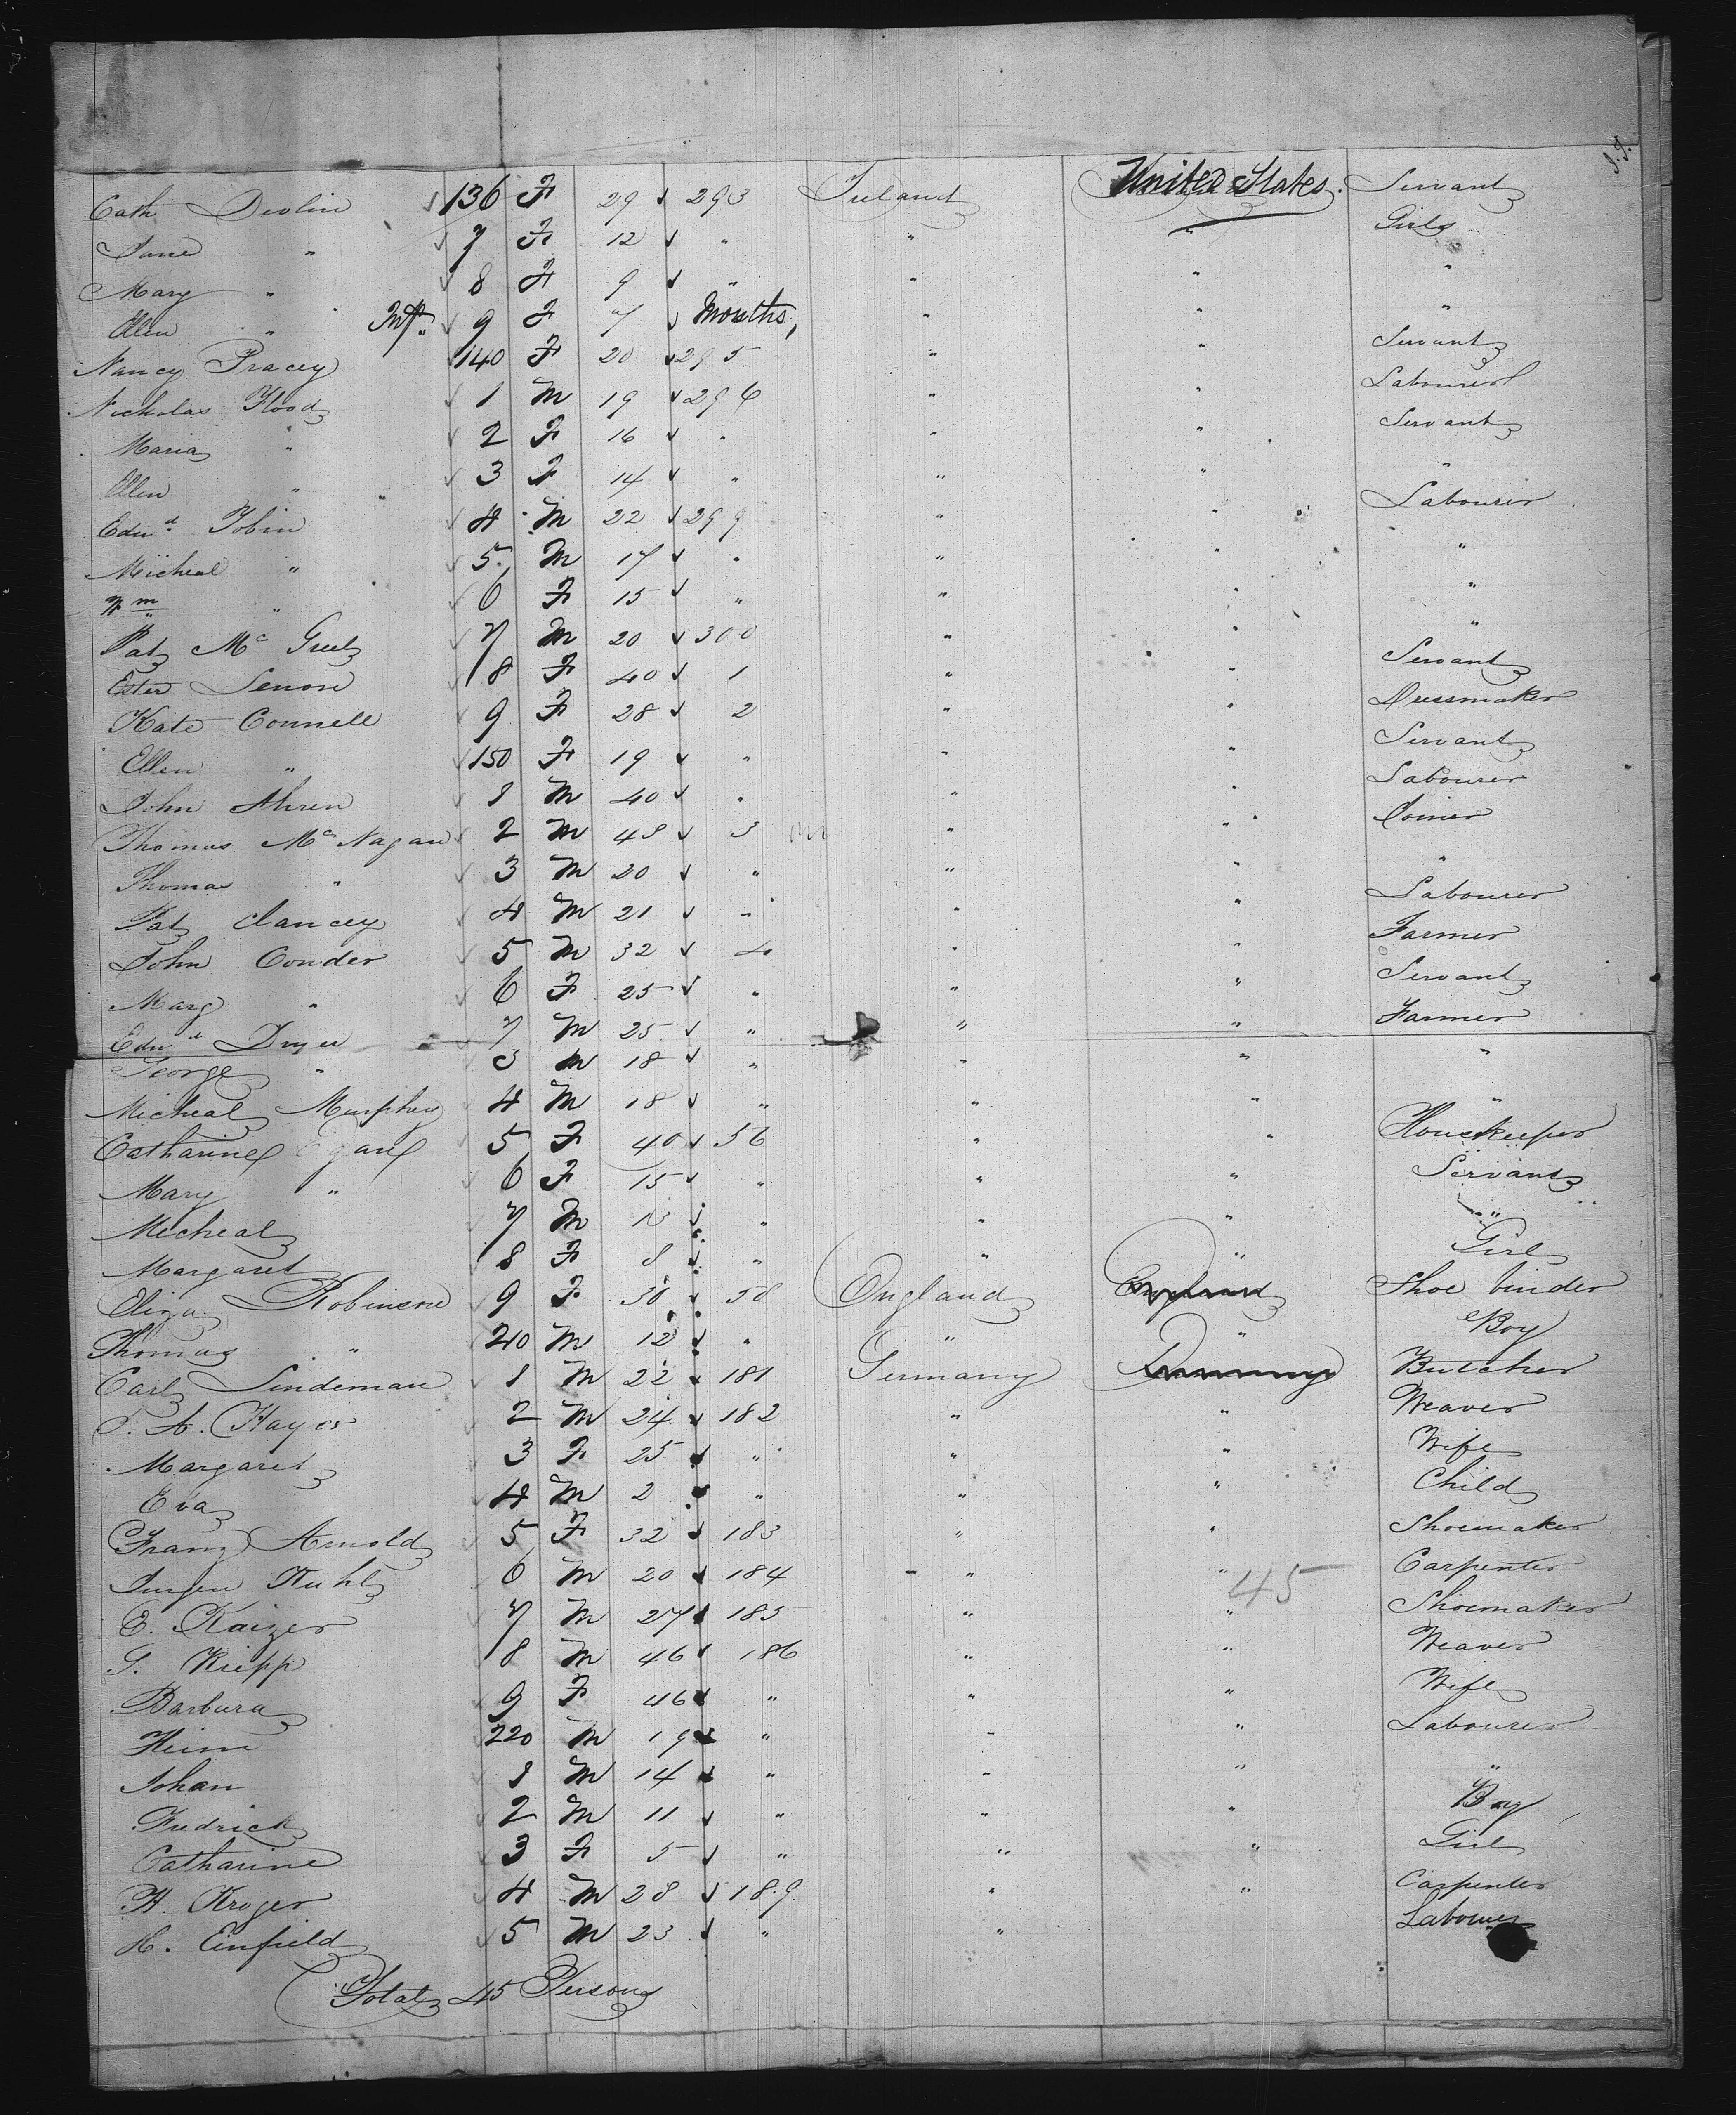 S.I.
Cath Devlin 136 F 29 293 Ireland United States. Servant
Jane " 7 F 12 " " " Girls
Mary " 8 F 9 " " " "
Ellen " Inft. 9 F 7 Months, " " "
Nancy Tracey 140 F 20 295 " " Servant
Nicholas Flood 1 M 19 296 " " Labourer
Maria " 2 F 16 " " " Servant
Ellen " 3 F 14 " " " "
Edwd. Tobin 4 M 22 299 " " Labourer
Micheal " 5 M 17 " " " "
Wm " 6 F 15 " " " "
Pat Mc 7 M 20 300 " " "
Ester Lenon 8 F 40 1 " " Servant
Kate Connell 9 F 28 2 " " Dressmaker
Ellen " 150 F 19 " " " Servant
John Ahren 1 M 40 " " " Labourer
Thomas Mc Nagan 2 M 48 3 " "
Thomas " 3 M 20 " " " "
Pat Clancey 4 M 21 " " " Labourer
John Conder 5 M 32 4 " " Farmer
Marg " 6 F 25 " " " Servant
Edwd Dwyer 7 M 25 " " " Farmer
George " 3 M 18 " " " "
Micheal Murphey 4 M 18 " " " "
Catharine 5 F 40 56 " " Housekeeper
Mary " 6 F 15 " " " Servant
Micheal 7 M 13 " " " "
Margaret 8 F 8 " " " Girl
Eliza Robinson 9 F 30 58 England England Shoe binder
Thomas " 210 M 12 " " " Boy
Carl Lindeman 1 M 22 181 Germany Germany Butcher
J. A. Hayer 2 M 24 182 " " Weaver
Margaret 3 F 25 " " " Wife
Eva 4 M 2 " " " Child
Franz Arnold 5 F 32 183 " " Shoemaker
Jurgen Kuhl 6 M 20 184 " " Carpenter
45
E. Kaizer 7 M 27 185 " " Shoemaker
G. Kiepp 8 M 46 186 " " Weaver
Barbara 9 F 46 " " " Wife
Heim 220 M 19 " " " Labourer
Johan 1 M 14 " " " "
Fredrick 2 M 11 " " " Boy
Catharine 3 F 5 " " " Girl
H. Kroger 4 M 28 189 " " Carpenter
H. Einfield 5 M 23 " " Labourer
Total 45 Persons